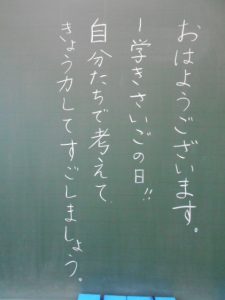 おはようございます。
1学きさいごの日!!
自分たちで考えて
きょう力してすごしましょう。